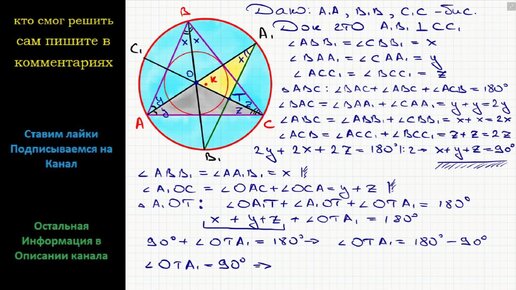 кто смог решить
сам пишите в
комментариях
Ставим лайки
Подписываемся на
Канал
Остальная
Информация в
Описании канала
B
A₁
C₁
x
x
x
O
K
T
y
y
z
z
A
C
B₁
Дано: AA₁ B₁B₁ C₁C - бис.
Док что A₁B₁ ⊥ CC₁
∠ABB₁ = ∠CBB₁ = x
∠BAA₁ = ∠CAA₁ = y
∠ACC₁ = ∠BCC₁ = z
△ABC: ∠BAC + ∠ABC + ∠ACB = 180°
∠BAC = ∠BAA₁ + ∠CAA₁ = y + y = 2y
∠ABC = ∠ABB₁ + ∠CBB₁ = x + x = 2x
∠ACB = ∠ACC₁ + ∠BCC₁ = z + z = 2z
2y + 2x + 2z = 180° |:2 → x + y + z = 90°
∠ABB₁ = ∠AA₁B₁ = x
∠A₁OC = ∠OAC + ∠OCA = y + z
△A₁OT: ∠OA₁T + ∠A₁OT + ∠OTA₁ = 180°
x + y + z + ∠OTA₁ = 180°
90° + ∠OTA₁ = 180° ⇒ ∠OTA₁ = 180° - 90°
∠OTA₁ = 90° ⇒